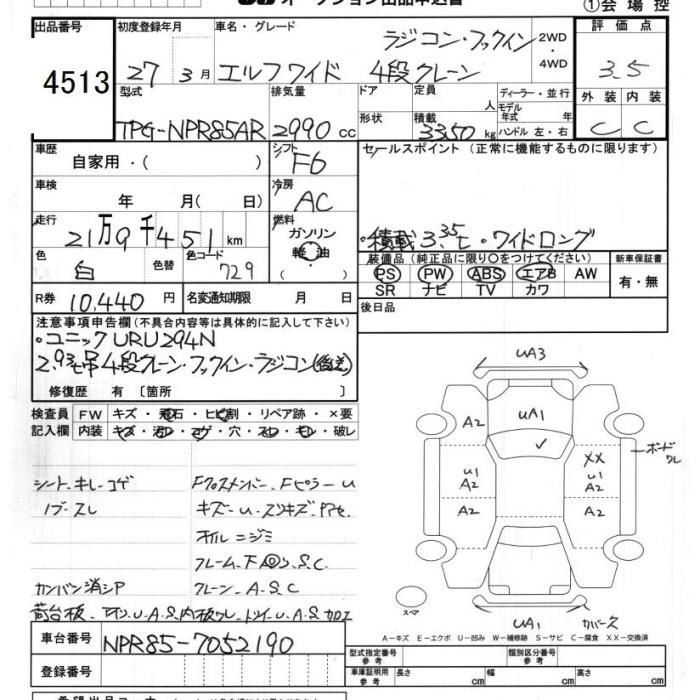 オークション出品申込書
①会場控
出品番号
4513
初度登録年月
27 3月
車名・グレード
ラジコン・フックイン
エルフワイド 4段クレーン
2WD・4WD
評価点
3.5
型式
TPG-NPR85AR
排気量
2990 cc
ドア
形状
定員
人
積載
3350 kg
ディーラー・並行
モデル年式 年
ハンドル 左・右
外装 内装
C C
車歴
自家用・( )
シフト
F6
セールスポイント (正常に機能するものに限ります)
車検
年 月( 日)
冷房
AC
走行
21万9千451 km
燃料
ガソリン
軽油
・積載3.35t・ワイドロング
色
白
色替
色コード
729
装備品 (純正品に限り○をつけてください)
PS PW ABS エアB AW
SR ナビ TV カワ
新車保証書
有・無
R券 10,440 円
名変通知期限 月 日
後日品
注意事項申告欄 (不具合内容等は具体的に記入して下さい)
・ユニック URU294N
2.93t吊 4段クレーン・フックイン・ラジコン(後送)
修復歴 有 〔箇所 〕
検査員記入欄
FW キズ・飛石・ヒビ割・リペア跡・×要
内装 キズ・汚レ・コゲ・穴・スレ・モレ・破レ
シート・キレ・コゲ
ノブ・スレ
カンバン消シア
Fクロスメンバー、Fピラー U
キズ・U・スリキズ・
オイルニジミ
フレーム・下廻り、S.C
クレーン・A.S.C
荷台板、アオリ、U.A.S,内板ワレ、トリイ、U.A.S 加工
UA3
UA1
A2 A2
U1 A2
XX
U1 A2
A2 A2
ボードワレ
スペア
UA1 カバース
A-キズ E-エクボ U-凹み W-補修跡 S-サビ C-腐食 XX-交換済
車台番号
NPR85-7052190
登録番号
型式指定番号 参考
類別区分番号 参考
車庫証明用 参考
長さ cm 幅 cm 高さ cm